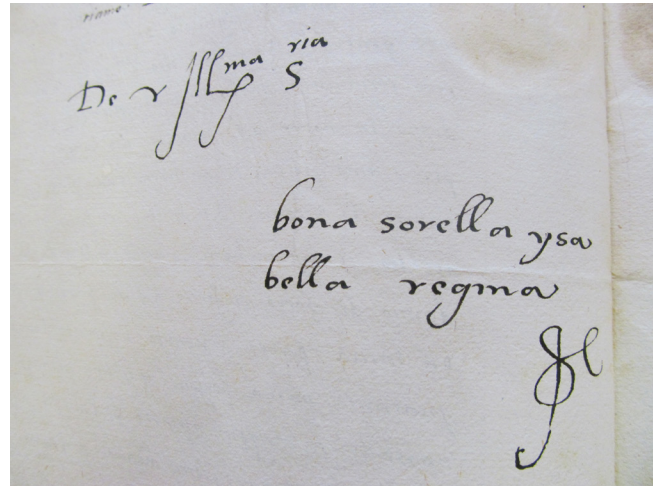 riamo.
De v Ill^ma S^ria
bona sorella ysa
bella regina